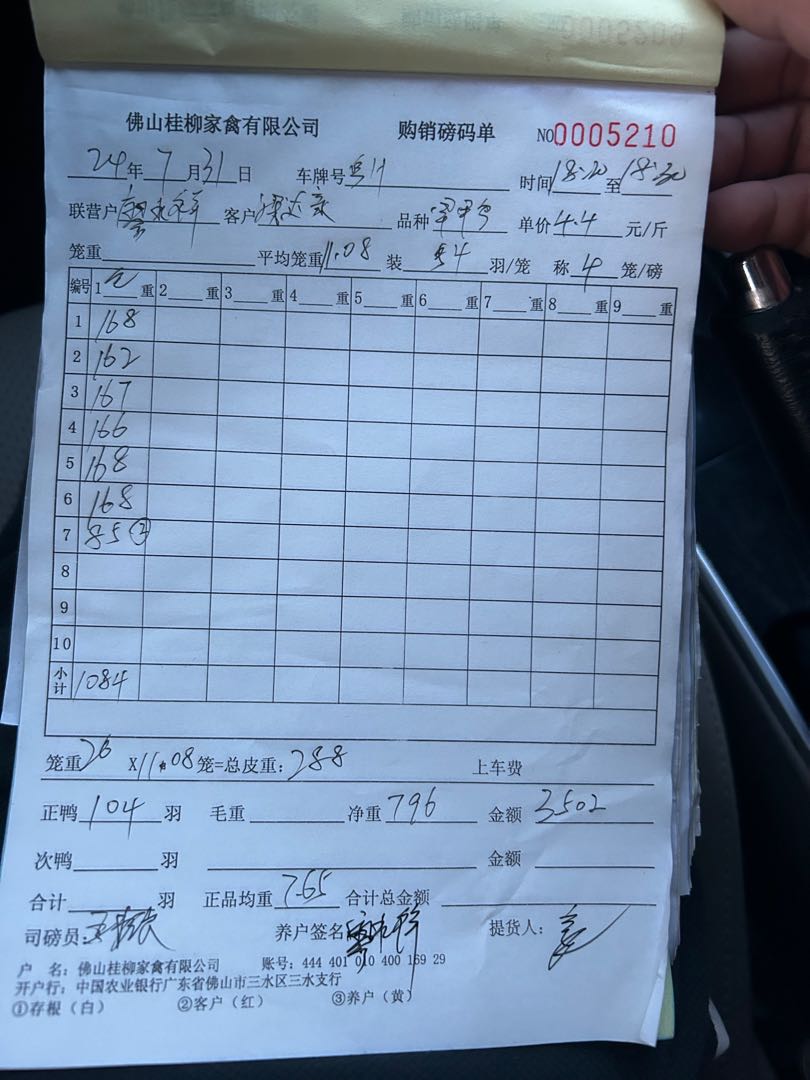 佛山桂柳家禽有限公司 购销磅码单 NO0005210
24年7月31日 车牌号 时间18:20至18:30
联营户 客户 品种 单价4.4元/斤
笼重 平均笼重11.08 装 4 羽/笼 称4笼/磅
编号 1 重 2 重 3 重 4 重 5 重 6 重 7 重 8 重 9 重
1 168
2 162
3 167
4 166
5 168
6 168
7 85②
8
9
10
小计 1084
笼重26 X11.08笼=总皮重:288 上车费
正鸭104羽 毛重 净重796 金额3502
次鸭 羽 金额
合计 羽 正品均重7.65 合计总金额
司磅员: 养户签名 提货人:
户 名:佛山桂柳家禽有限公司 账号:444 401 010 400 169 29
开户行:中国农业银行广东省佛山市三水区三水支行
①存根(白) ②客户(红) ③养户(黄)